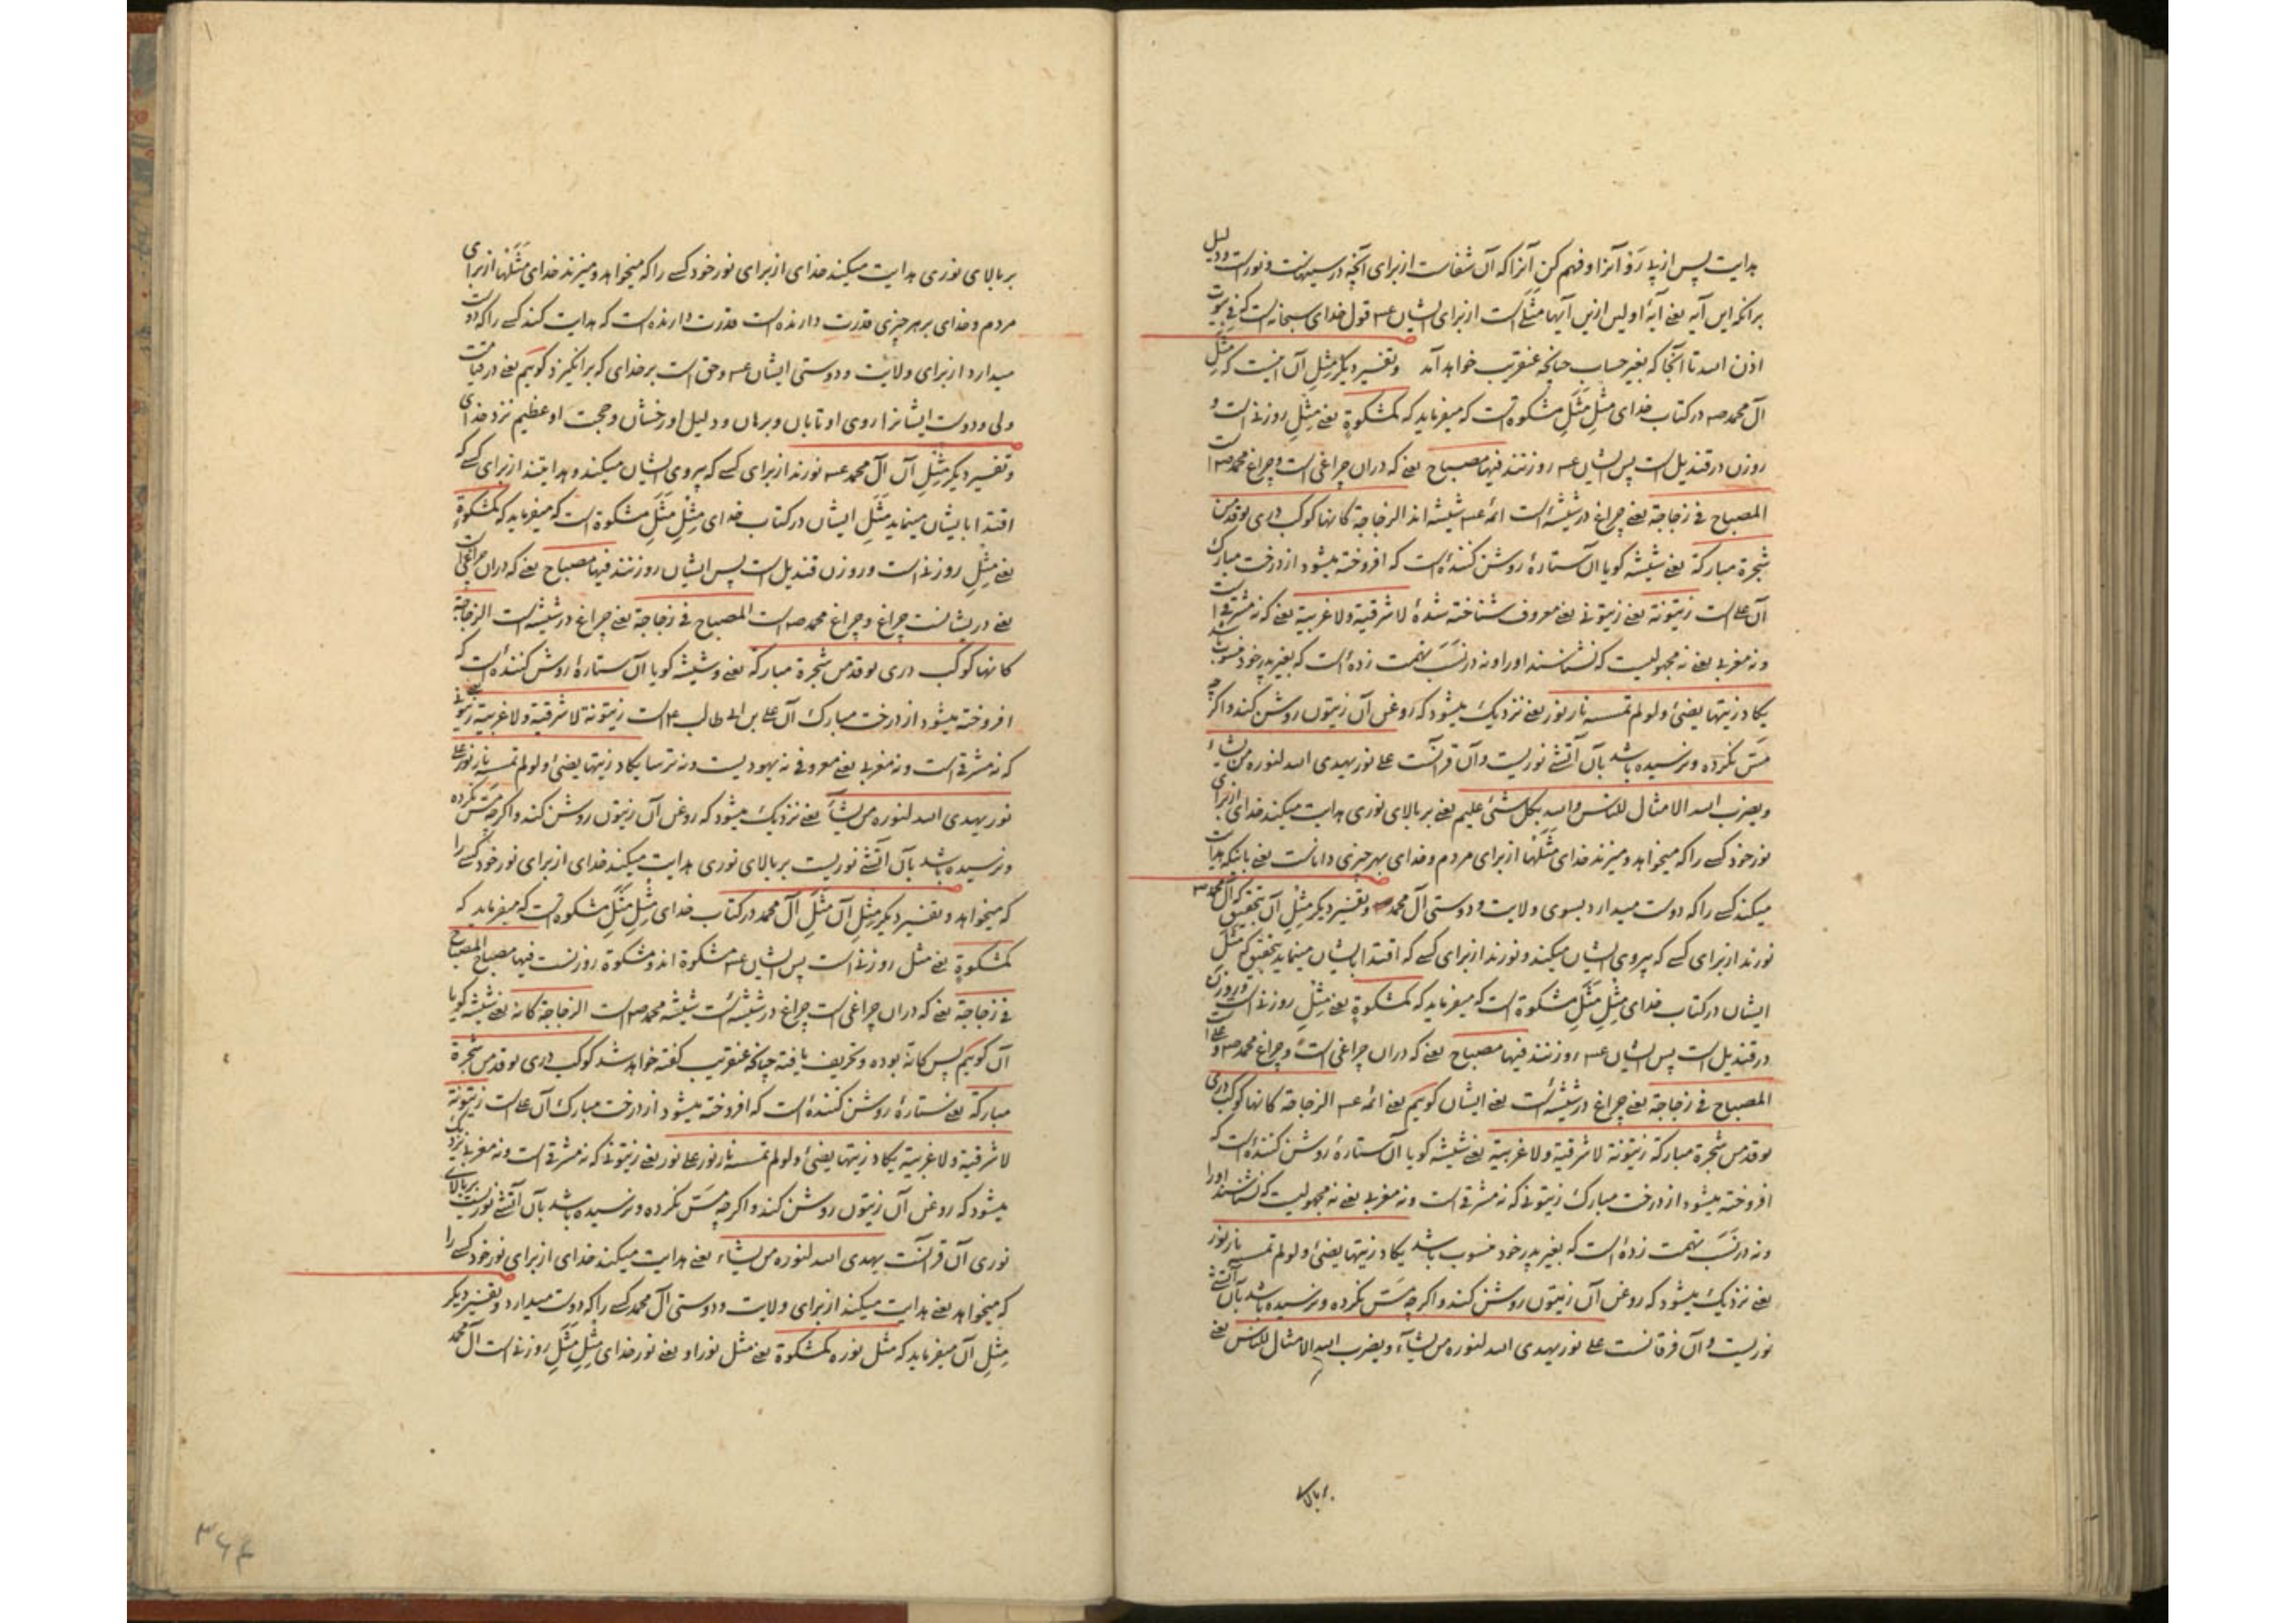 هدایت پس از پی رَوْ آنرا و فهم کن آنرا که آن شفاست از برای آنچه در سینهاست و نورست و دلیل
برانکه این آیه یعنی آیهٔ اولیس ازین آیها مثلی است از برای ایشان عـ قول خدای سبحانه است که فی بیوت
اذن الله تا آنجا که بغیر حساب چنانچه عنقریب خواهد آمد و تفسیر دیگر مِثلِ آن اینست که مَثَلِ
آل محمد صـ در کتاب خدای مِثلِ مَثَلِ مشکوة است که میفرماید که کمشکوةٍ یعنی مِثلِ روزنی است و
روزن در قندیل است پس ایشان عـ روزنند فیها مصباح یعنی که دران چراغی است و چراغ محمد صـ است
المصباح فی زجاجة یعنی چراغ در شیشهٔ است ائمه عـ شیشه اند الزجاجة کانها کوکب دری یوقد من
شجرة مبارکة یعنی شیشه گویا آن ستارهٔ روشن کنندهٔ است که افروخته میشود از درخت مبارک
آن علی است زیتونة یعنی زیتونی یعنی معروف شناخته شدهٔ لا شرقیة ولا غربیة یعنی که نه مشرقی است
و نه مغربی یعنی نه مجهولیست که نشناسند او را و نه در نسَب تهمت زدهٔ است که بغیر پدر خود منسوب باشد
یکاد زیتها یضیٔ و لو لم تمسسه نار نور یعنی نزدیک میشود که روغن آن زیتون روشن کند و اگر چه
مَسّ نکرده و نرسیده باشد بآن آتشی نوریست و آن قرآنست علی نور یهدی الله لنوره من یشاء
و یضرب الله الامثال للناس والله بکل شیٔ علیم یعنی بر بالای نوری هدایت میکند خدای از برای
نور خود کسی را که میخواهد و میزند خدای مَثَلها از برای مردم و خدای بهر چیزی داناست یعنی بانکه هدایت
میکند کسی را که دوست میدارد بسوی ولایت و دوستی آل محمد صـ و تفسیر دیگر مِثلِ آن بتحقیق که آل محمد صـ
نورند از برای کسی که پیروی ایشان میکند و نورند از برای کسی که اقتدا بایشان مینماید بتحقیق که مَثَل
ایشان در کتاب خدای مِثلِ مَثَلِ مشکوة است که میفرماید که کمشکوةٍ یعنی مِثلِ روزنی است و روزن
در قندیل است پس ایشان عـ روزنند فیها مصباح یعنی که دران چراغی است و چراغ محمد صـ و علی است
المصباح فی زجاجة یعنی چراغ در شیشهٔ است یعنی ایشان گوییم یعنی ائمه عـ الزجاجة کانها کوکب دری
یوقد من شجرة مبارکة زیتونة لا شرقیة ولا غربیة یعنی شیشه گویا آن ستارهٔ روشن کنندهٔ است که
افروخته میشود از درخت مبارک زیتونی که نه مشرقی است و نه مغربی یعنی نه مجهولیست که نشناسند او را
و نه در نسَب تهمت زدهٔ است که بغیر پدر خود منسوب باشد یکاد زیتها یضیٔ و لو لم تمسسه نار نور
یعنی نزدیک میشود که روغن آن زیتون روشن کند و اگر چه مَسّ نکرده و نرسیده باشد بآن آتشی
نوریست و آن فرقانست علی نور یهدی الله لنوره من یشآء و یضرب الله الامثال للناس یعنی
بر بالای
بر بالای نوری هدایت میکند خدای از برای نور خود کسی را که میخواهد و میزند خدای مَثَلها از برای
مردم و خدای بر هر چیزی قدرت دارنده است قدرت دارنده است که هدایت کند کسی را که دوست
میدارد از برای ولایت و دوستی ایشان عـ و حق است بر خدای که برانگیزد گوییم یعنی در قیامت
ولی و دوست ایشانرا روی او تابان و برهان و دلیل او رخشان و حجت او عظیم نزد خدای
و تفسیر دیگر مِثلِ آن آل محمد عـ نورند از برای کسی که پیروی ایشان میکند و هدایتند از برای کسی که
اقتدا بایشان مینماید مَثَلِ ایشان در کتاب خدای مِثلِ مَثَلِ مشکوة است که میفرماید که کمشکوةٍ
یعنی مِثلِ روزنی است و روزن قندیل است پس ایشان روزنند فیها مصباح یعنی که دران چراغی است
یعنی در ایشانست چراغ و چراغ محمد صـ است المصباح فی زجاجة یعنی چراغ در شیشهٔ است الزجاجة
کانها کوکب دری یوقد من شجرة مبارکة یعنی و شیشه گویا آن ستارهٔ روشن کنندهٔ است که
افروخته میشود از درخت مبارک آن علی بن ابی طالب ع است زیتونة لا شرقیة ولا غربیة یعنی زیتونی
که نه مشرقی است و نه مغربی یعنی معروفی نه یهودیست و نه ترسا یکاد زیتها یضیٔ و لو لم تمسسه نار نور علی
نور یهدی الله لنوره من یشآء یعنی نزدیک میشود که روغن آن زیتون روشن کند و اگر چه مَسّ نکرده
و نرسیده باشد بآن آتشی نوریست بر بالای نوری هدایت میکند خدای از برای نور خود کسی را
که میخواهد و تفسیر دیگر مِثلِ آن مَثَلِ آل محمد در کتاب خدای مِثلِ مَثَلِ مشکوة است که میفرماید که
کمشکوةٍ یعنی مثل روزنی است پس ایشان عـ مشکوة اند و مشکوة روزنست فیها مصباح المصباح
فی زجاجة یعنی که دران چراغی است چراغ در شیشهٔ است شیشه محمد صـ است الزجاجة کانه یعنی شیشه گویا
آن گوییم پس کانهٔ بوده و تحریف یافته چنانچه عنقریب گفته خواهد شد کوکب دری یوقد من شجرة
مبارکة یعنی ستارهٔ روشن کنندهٔ است که افروخته میشود از درخت مبارک آن علی است زیتونة
لا شرقیة ولا غربیة یکاد زیتها یضیٔ و لو لم تمسسه نار نور علی نور یعنی زیتونی که نه مشرقی است و نه مغربی نزدیک
میشود که روغن آن زیتون روشن کند و اگر چه مَسّ نکرده و نرسیده باشد بآن آتشی نوریست بر بالای
نوری آن قرآنست یهدی الله لنوره من یشاء یعنی هدایت میکند خدای از برای نور خود کسی را
که میخواهد یعنی هدایت میکند از برای ولایت و دوستی آل محمد کسی را که دوست میدارد و تفسیر دیگر
مِثلِ آن میفرماید که مثل نوره کمشکوة یعنی مثل نور او یعنی نور خدای مِثلِ مَثَلِ روزنی است آل محمد
۳۶۴